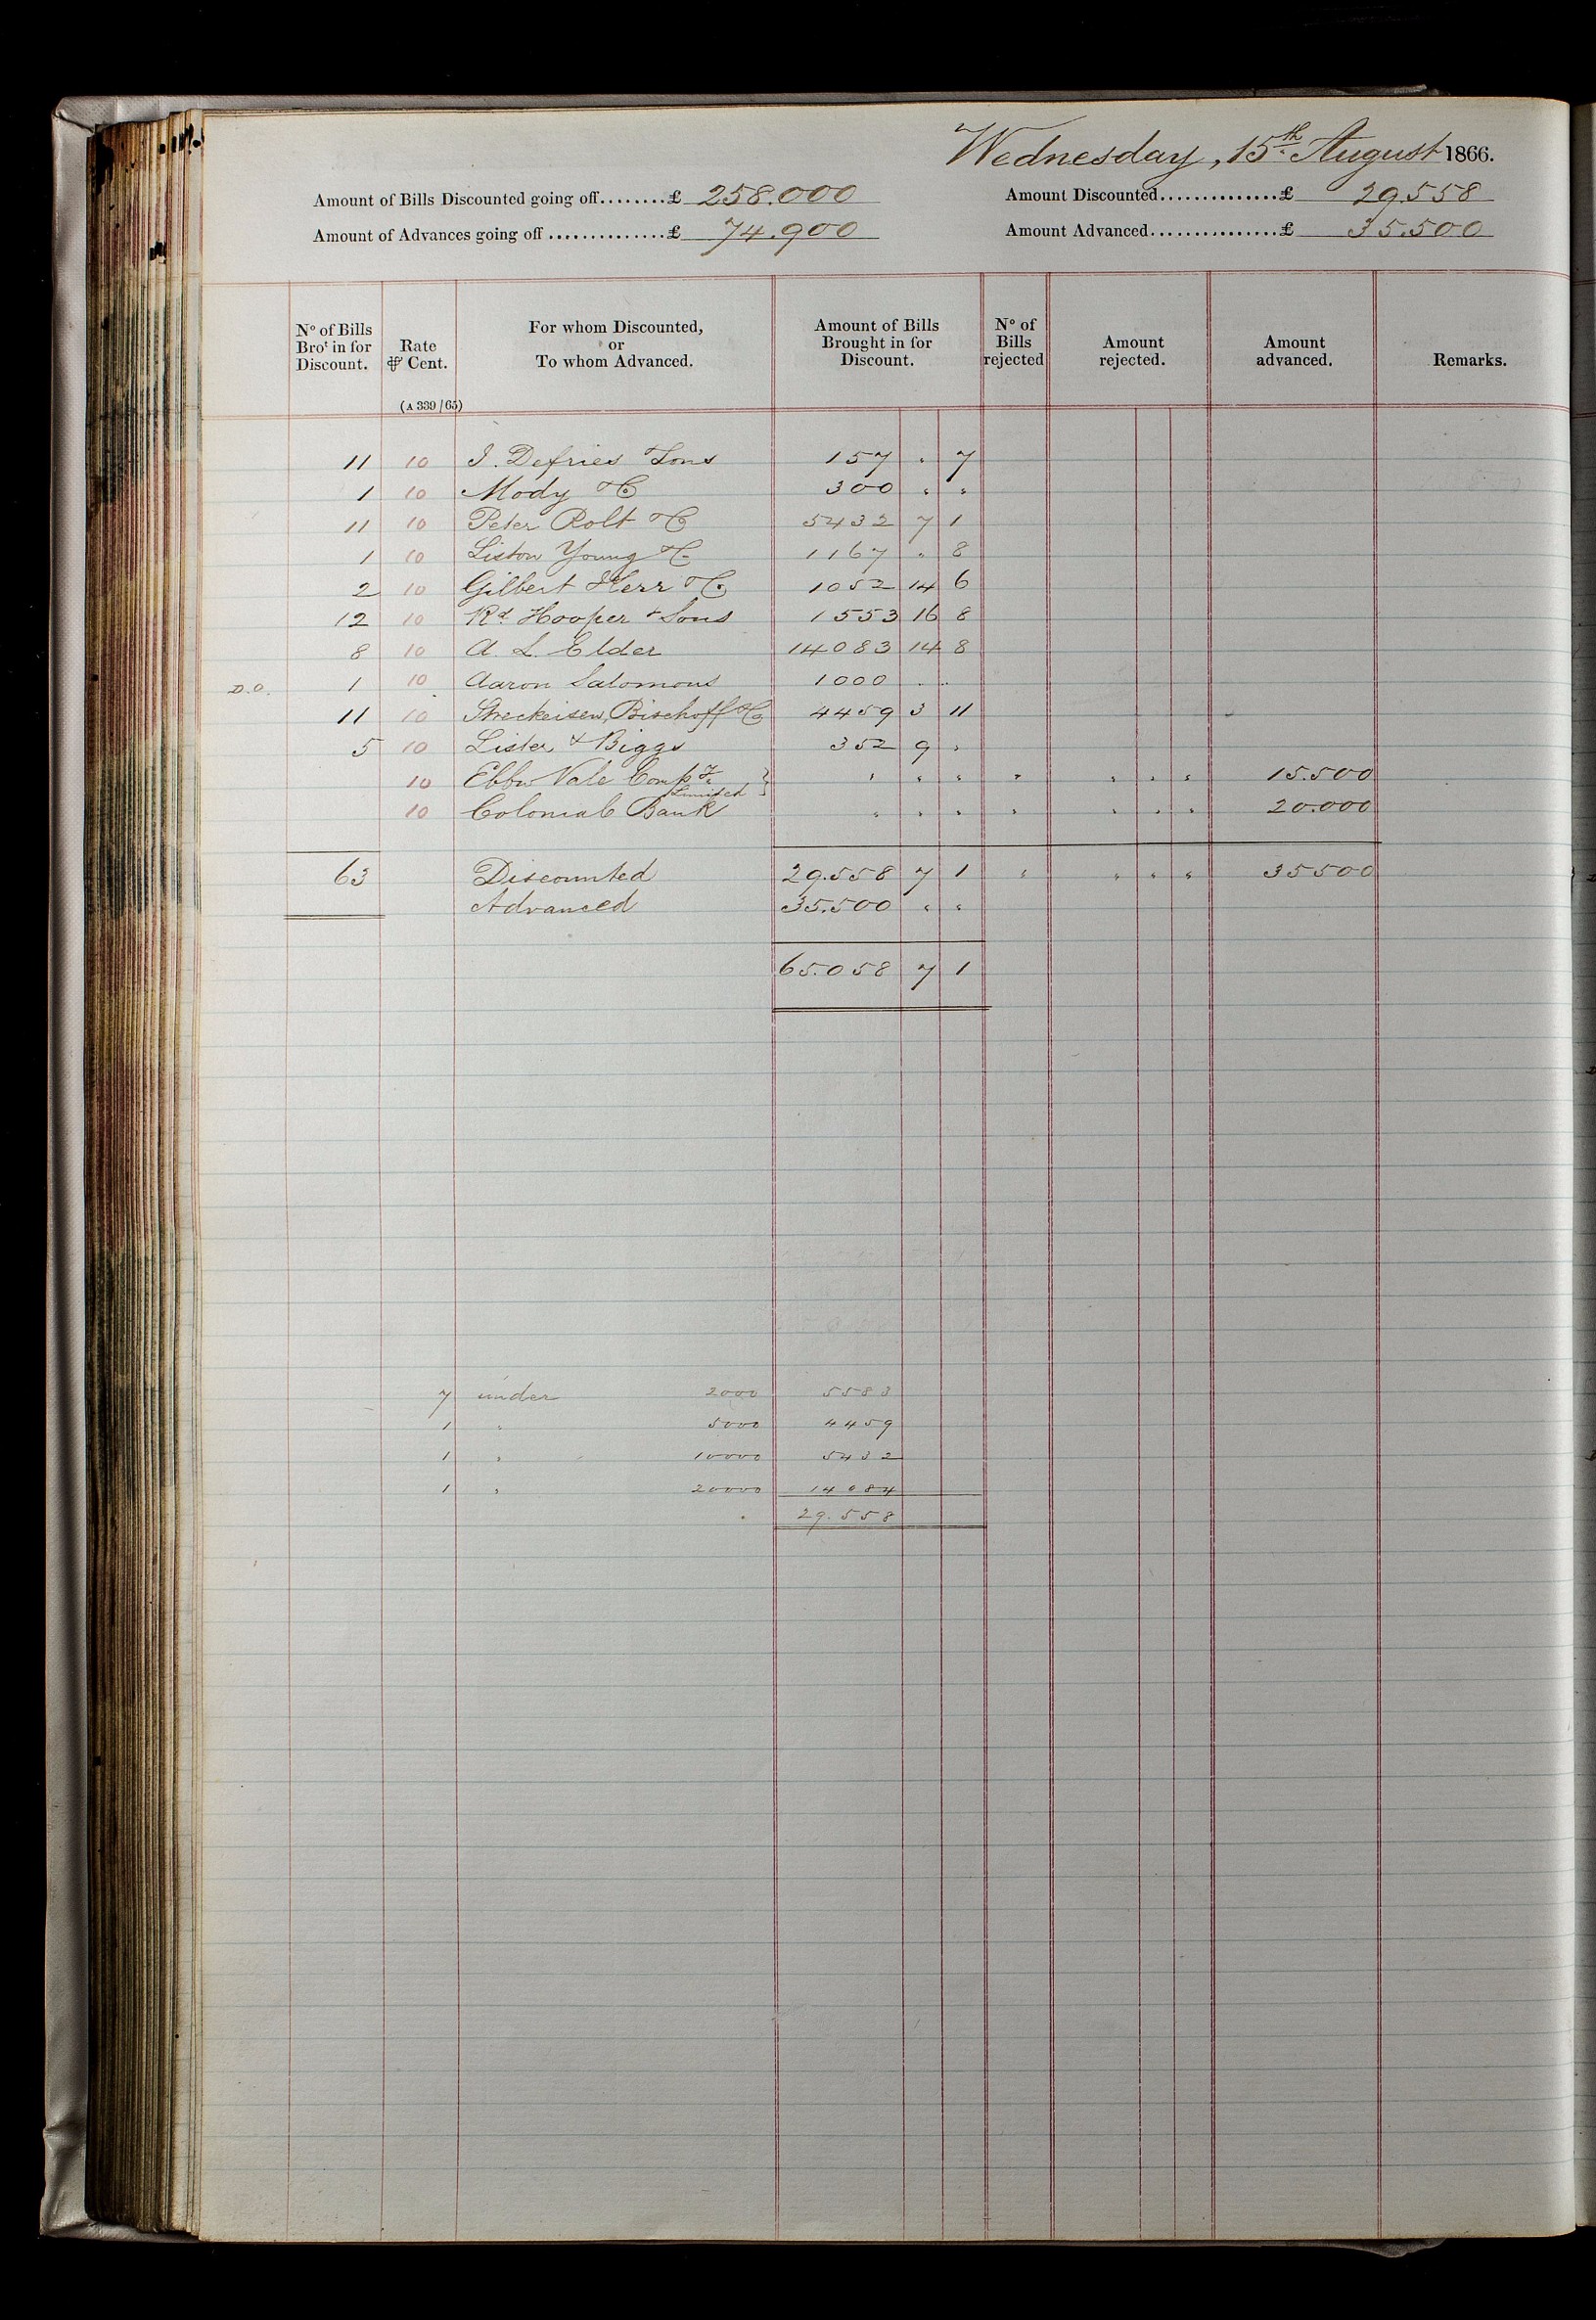 Wednesday, 15th August 1866.
Amount of Bills Discounted going off........£ 258.000 Amount Discounted..............£ 29.558
Amount of Advances going off ..............£ 74.900 Amount Advanced...............£ 35.500
No of Bills Brot in for Discount. Rate ⅌ Cent. For whom Discounted, or To whom Advanced. Amount of Bills Brought in for Discount. No of Bills rejected Amount rejected. Amount advanced. Remarks.
(A 339/65)
11 10 J. Defries & Sons 157 " 7
1 10 Mody & Co 300 " "
11 10 Peter Rolt & Co 5432 7 1
1 10 Liston Young & Co 1167 " 8
2 10 Gilbert Kerr & Co 1052 14 6
12 10 Rd Hooper & Sons 1553 16 8
8 10 A. L. Elder 14083 14 8
D.O. 1 10 Aaron Salomons 1000 " "
11 10 Streckeisen, Bischoff & Co 4459 3 11
5 10 Lister & Biggs 352 9 "
10 Ebbw Vale Compy Limited } " " " " " " " 15.500
10 Colonial Bank " " " " " " " 20.000
63 Discounted 29.558 7 1 " " " " 35500
Advanced 35.500 " "
65.058 7 1
7 under 2000 5583
1 " 5000 4459
1 " 10000 5432
1 " 20000 14084
29.558